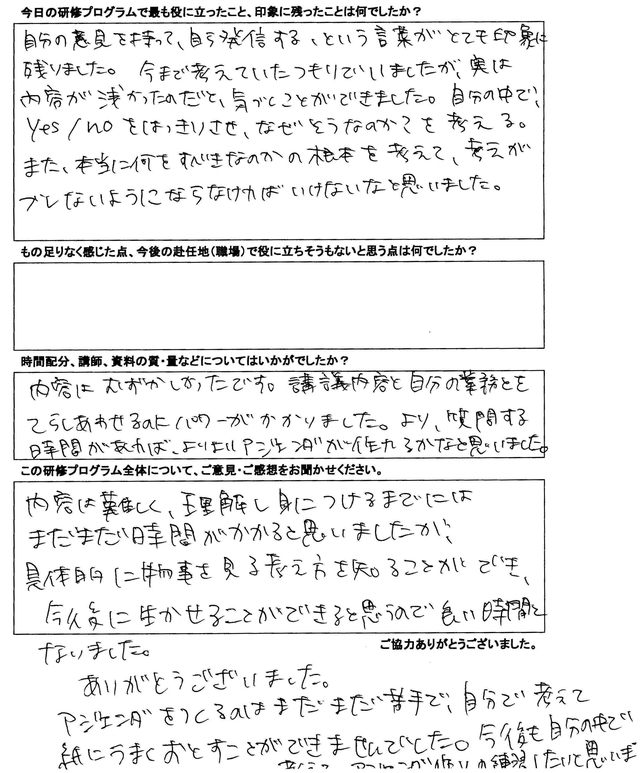 今日の研修プログラムで最も役に立ったこと、印象に残ったことは何でしたか?
自分の意見を持って、自ら発信する、という言葉がとても印象に
残りました。今まで考えていたつもりでいましたが、実は
内容が浅かったのだと、気がつくことができました。自分の中で、
Yes/noをはっきりさせ、なぜそうなのか?を考える。
また、本当に何をすべきなのかの根本を考えて、考えが
ブレないようにならなければいけないなと思いました。
もの足りなく感じた点、今後の赴任地(職場)で役に立ちそうもないと思う点は何でしたか?
時間配分、講師、資料の質・量などについてはいかがでしたか?
内容はむずかしかったです。講議内容と自分の業務とを
てらしあわせるのにパワーがかかりました。より、質問する
時間があれば、よりよいアジェンダが作れるかなと思いました。
この研修プログラム全体について、ご意見・ご感想をお聞かせください。
内容は難しく、理解し身につけるまでには
まだまだ時間がかかると思いましたが、
具体的に物事を見る考え方を知ることができ、
今後に生かせることができると思うので良い時間と
なりました。
ご協力ありがとうございました。
ありがとうございました。
アジェンダをつくるのはまだまだ苦手で、自分で考えて
紙にうまくおとすことができませんでした。今後も自分の中で
考えて、アジェンダ作りの練習したいと思いま